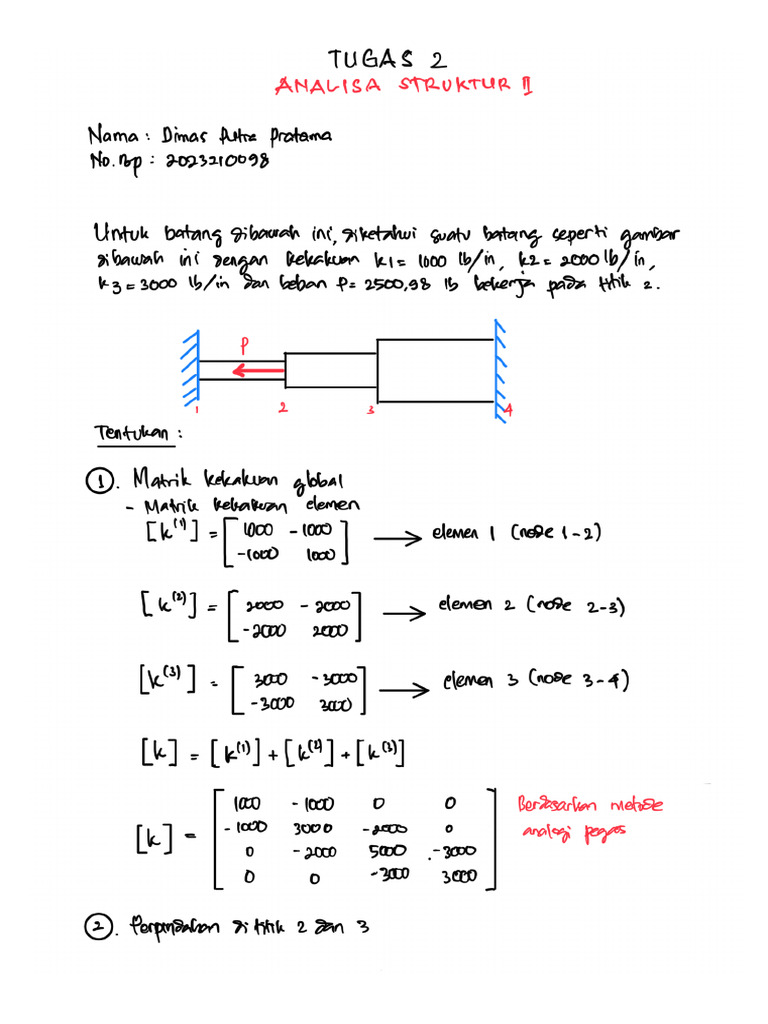 TUGAS 2
ANALISA STRUKTUR II
Nama : Dimas Putra Pratama
No. Bp : 2023210098
Untuk batang dibawah ini, diketahui suatu batang seperti gambar
dibawah ini dengan kekakuan k1 = 1000 lb/in, k2 = 2000 lb/in,
k3 = 3000 lb/in dan beban P = 2500,98 lb bekerja pada titik 2.
P
1 2 3 4
Tentukan :
1. Matrik kekakuan global
- Matrik kekakuan elemen
[k(1)] = [1000 -1000
-1000 1000] → elemen 1 (node 1-2)
[k(2)] = [2000 -2000
-2000 2000] → elemen 2 (node 2-3)
[k(3)] = [3000 -3000
-3000 3000] → elemen 3 (node 3-4)
[k] = [k(1)] + [k(2)] + [k(3)]
[k] = [1000 -1000 0 0
-1000 3000 -2000 0
0 -2000 5000 -3000
0 0 -3000 3000]
Berdasarkan metode
analogi pegas
2. Perpindahan di titik 2 dan 3